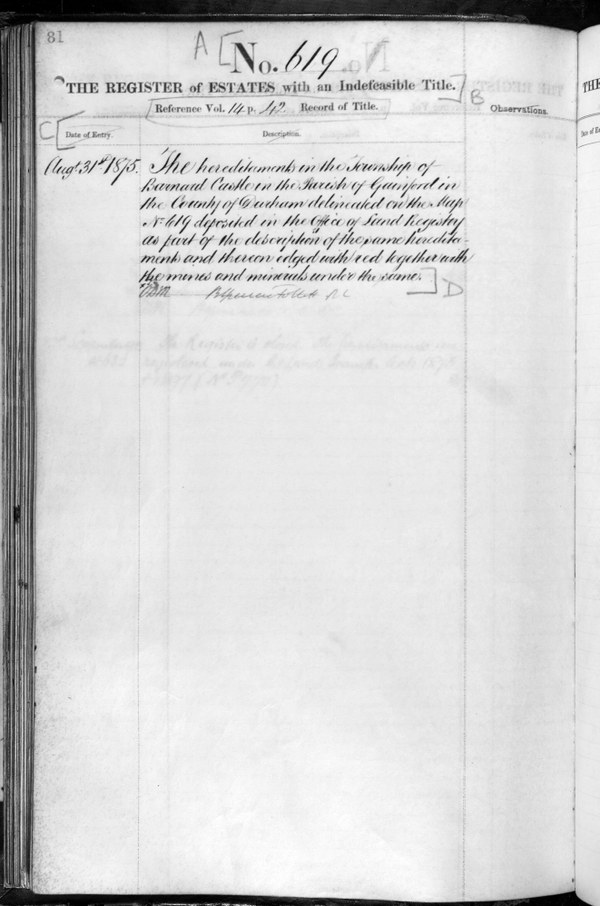 81
A [
No. 619
THE REGISTER of ESTATES with an Indefeasible Title. ] B
Reference Vol. 14 p. 42 Record of Title.
Observations.
C [
Date of Entry.
Description.
Augt 31st 1875.
The hereditaments in the Township of
Barnard Castle in the Parish of Gainford in
the County of Durham delineated on the Map
No 619 deposited in the Office of Land Registry
as part of the description of the same heredita-
ments and thereon edged with red together with
the mines and minerals under the same. ] D
THE
Date of E